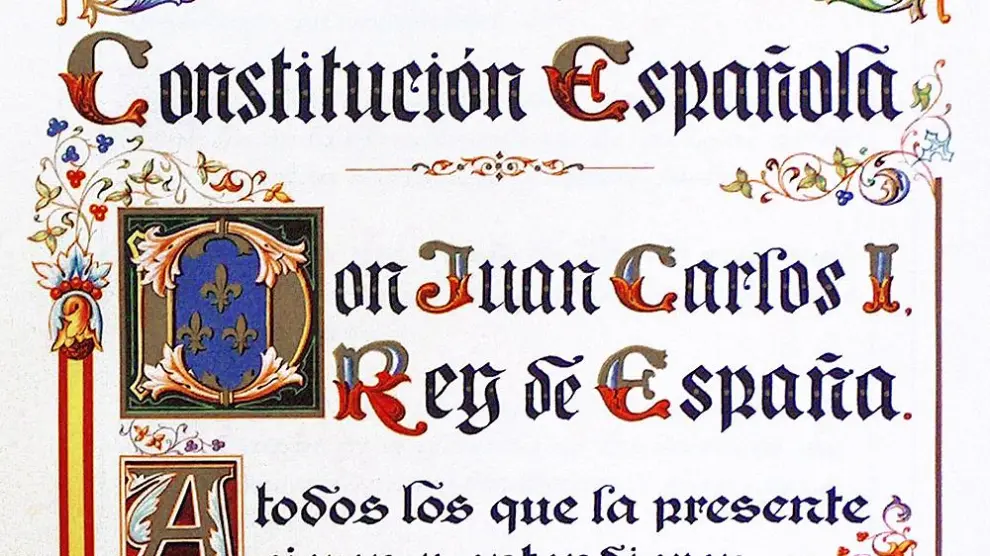 Constitución Española
Don Juan Carlos I,
Rey de España.
A todos los que la presente